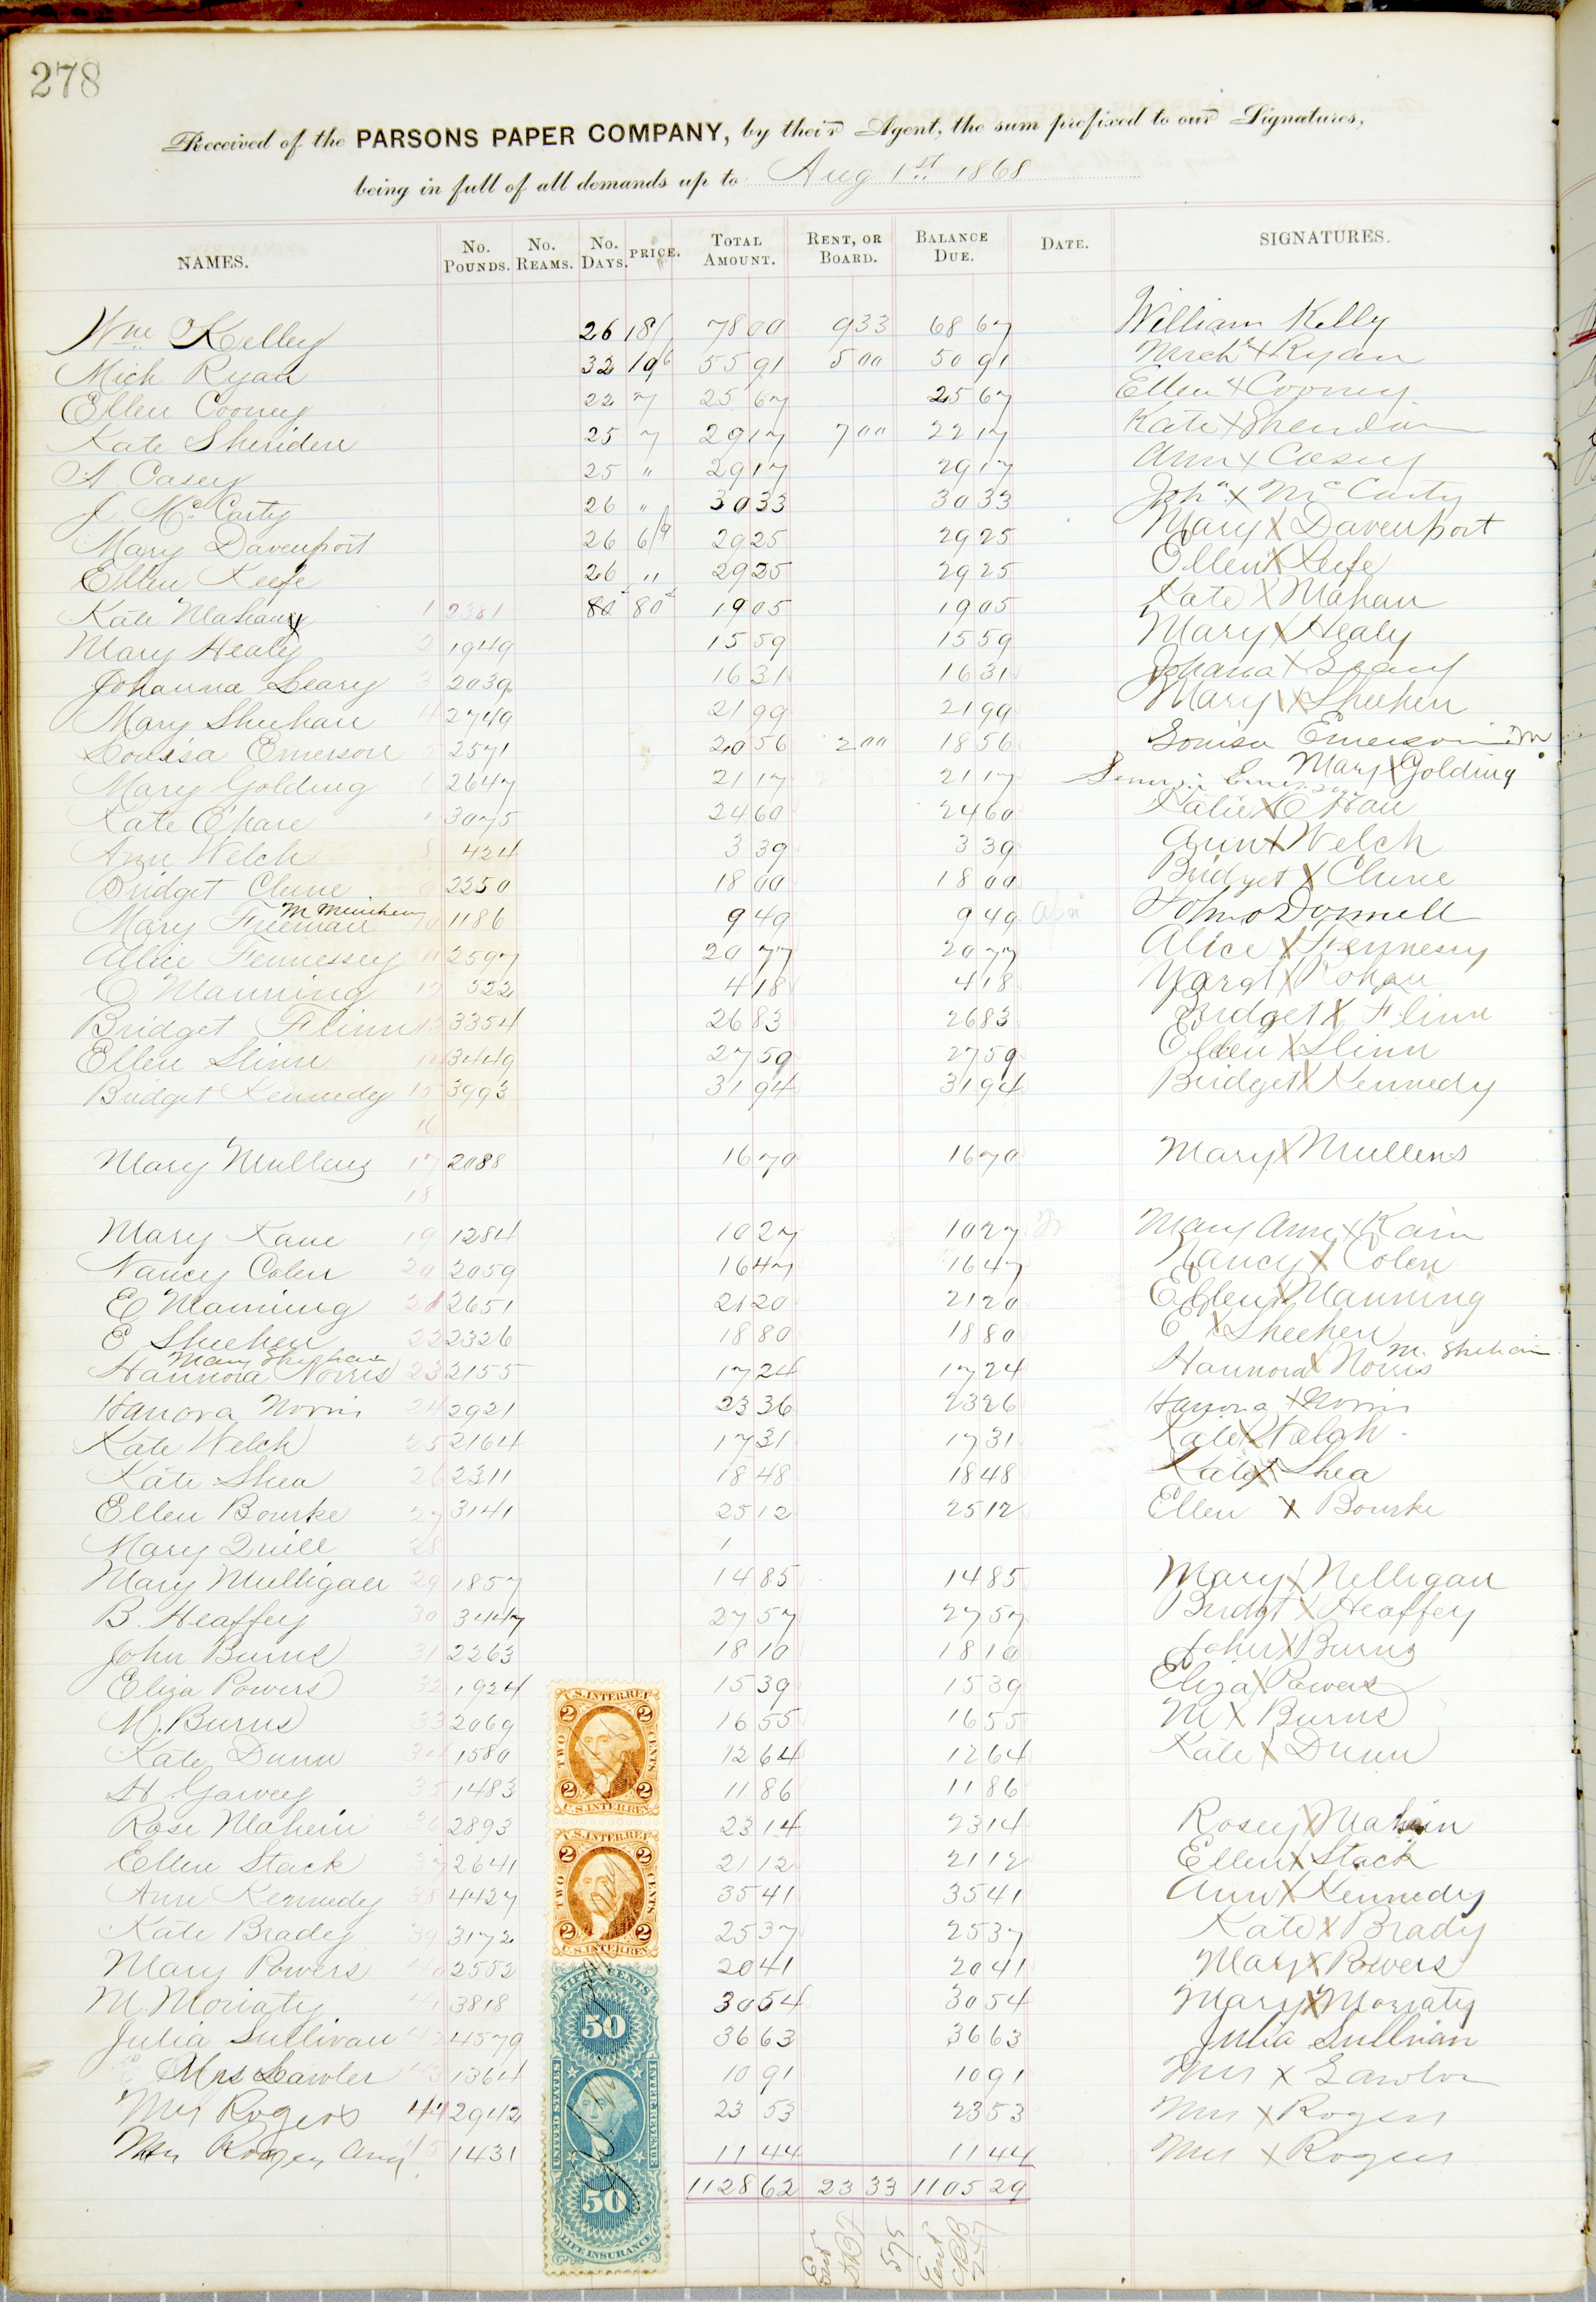 278
Received of the PARSONS PAPER COMPANY, by their Agent, the sum prefixed to our Signatures,
being in full of all demands up to Aug 1st 1868
NAMES. No. POUNDS. No. REAMS. No. DAYS. PRICE. TOTAL AMOUNT. RENT, OR BOARD. BALANCE DUE. DATE. SIGNATURES.
Wm Kelley 26 18/ 78 00 9 33 68 67 William Kelly
Mich Ryan 32 10/6 55 91 5 00 50 91 Mich X Ryan
Ellen Cooney 22 7 25 67 25 67 Ellen X Cooney
Kate Sheriden 25 7 29 17 7 00 22 17 Kate X Sheridan
A. Casey 25 " 29 17 29 17 Ann X Casey
J. McCarty 26 " 30 33 30 33 Joha X McCarty
Mary Davenport 26 6/9 29 25 29 25 Mary X Davenport
Ellen Keefe 26 " 29 25 29 25 Ellen X Keefe
Kate Mahany 1 2381 80 80 19 05 19 05 Kate X Mahan
Mary Healy 2 1949 15 59 15 59 Mary X Healy
Johanna Leary 3 2039 16 31 16 31 Johana X Leary
Mary Sheehan 4 2749 21 99 21 99 Mary X Sheehen
Louisa Emerson 5 2571 20 56 2 00 18 56 Louisa Emerson
Mary Golding 6 2647 21 17 21 17 Mary X Golding
Kate O'hare 7 3075 24 60 24 60 Katie X O Hare
Ann Welch 8 424 3 39 3 39 Ann X Welch
Bridget Clune 9 2250 18 00 18 00 Bridget X Clune
Mary Freeman 10 1186 9 49 9 49 John oDonnell
Allice Fennessey 11 2597 20 77 20 77 Alice X Fennessy
C Manning 12 522 4 18 4 18 X Rohan
Bridget Flinn 13 3354 26 83 26 83 Bridget X Flinn
Ellen Slinn 14 3449 27 59 27 59 Ellen X Slinn
Bridget Kennedy 15 3993 31 94 31 94 Bridget X Kennedy
16
Mary Mullens 17 2088 16 70 16 70 Mary X Mullens
18
Mary Kane 19 1284 10 27 10 27 Mary Ann X Kain
Nancy Colen 20 2059 16 47 16 47 Nancy X Colen
E Manning 21 2651 21 20 21 20 Ellen X Manning
E Sheehen 22 2326 18 80 18 80 E X Sheehen
Mary Sheehan M. Shehan
Hannora Norris 23 2155 17 24 17 24 Hannora X Norris
Hanora Norris 24 2921 23 36 23 26 Hanora X Norris
Kate Welch 25 2164 17 31 17 31 Kate X Welch
Kate Shea 26 2311 18 48 18 48 Kate X Shea
Ellen Bourke 27 3141 25 12 25 12 Ellen X Bourke
Mary Quill 28 1
Mary Mulligan 29 1857 14 85 14 85 Mary X Nelligan
B. Heaffey 30 3447 27 57 27 57 Bridgt X Heaffey
John Burns 31 2263 18 10 18 10 John X Burns
Eliza Powers 32 1924 15 39 15 39 Eliza X Powers
M. Burns 33 2069 16 55 16 55 M X Burns
Kate Dunn 34 1580 12 64 12 64 Kate X Dunn
H Garvey 35 1483 11 86 11 86
Rose Mahein 36 2893 23 14 23 14 Rosey X Mahein
Ellen Stack 37 2641 21 12 21 12 Ellen X Stack
Ann Kennedy 38 4427 35 41 35 41 Ann X Kennedy
Kate Bradey 39 3172 25 37 25 37 Kate X Brady
Mary Powers 40 2552 20 41 20 41 Mary X Powers
M. Moriaty 41 3818 30 54 30 54 Mary X Moriaty
Julia Sullivan 42 4579 36 63 36 63 Julia Sullivan
Mrs Lawler 43 1364 10 91 10 91 Mrs X Lawlor
Mrs Rogers 44 2942 23 53 23 53 Mrs X Rogers
Mrs Rogers 45 1431 11 44 11 44 Mrs X Rogers
1128 62 23 33 1105 29
U.S. INTER. REV.
TWO CENTS
2 2
2 2
U.S. INTER. REV.
U.S. INTER. REV.
TWO CENTS
2 2
2 2
U.S. INTER. REV.
FIFTY CENTS
50
UNITED STATES INTER. REVENUE
50
LIFE INSURANCE